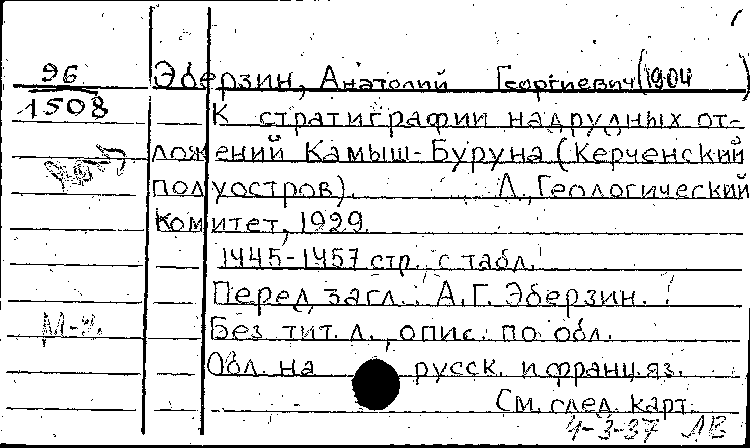 96
1508
Эберзин, Анатолий Георгиевич (1904 )
К стратиграфии надрудных от-
ложений Камыш-Буруна (Керченский
полуостров). Л., Геологический
Комитет, 1929.
1445-1457 стр., с табл.
Перед загл.: А.Г. Эберзин.
Без тит. л., опис. по обл.
Обл. на русск. и франц. яз.
См. след. карт.
4-3-37 ЛВ